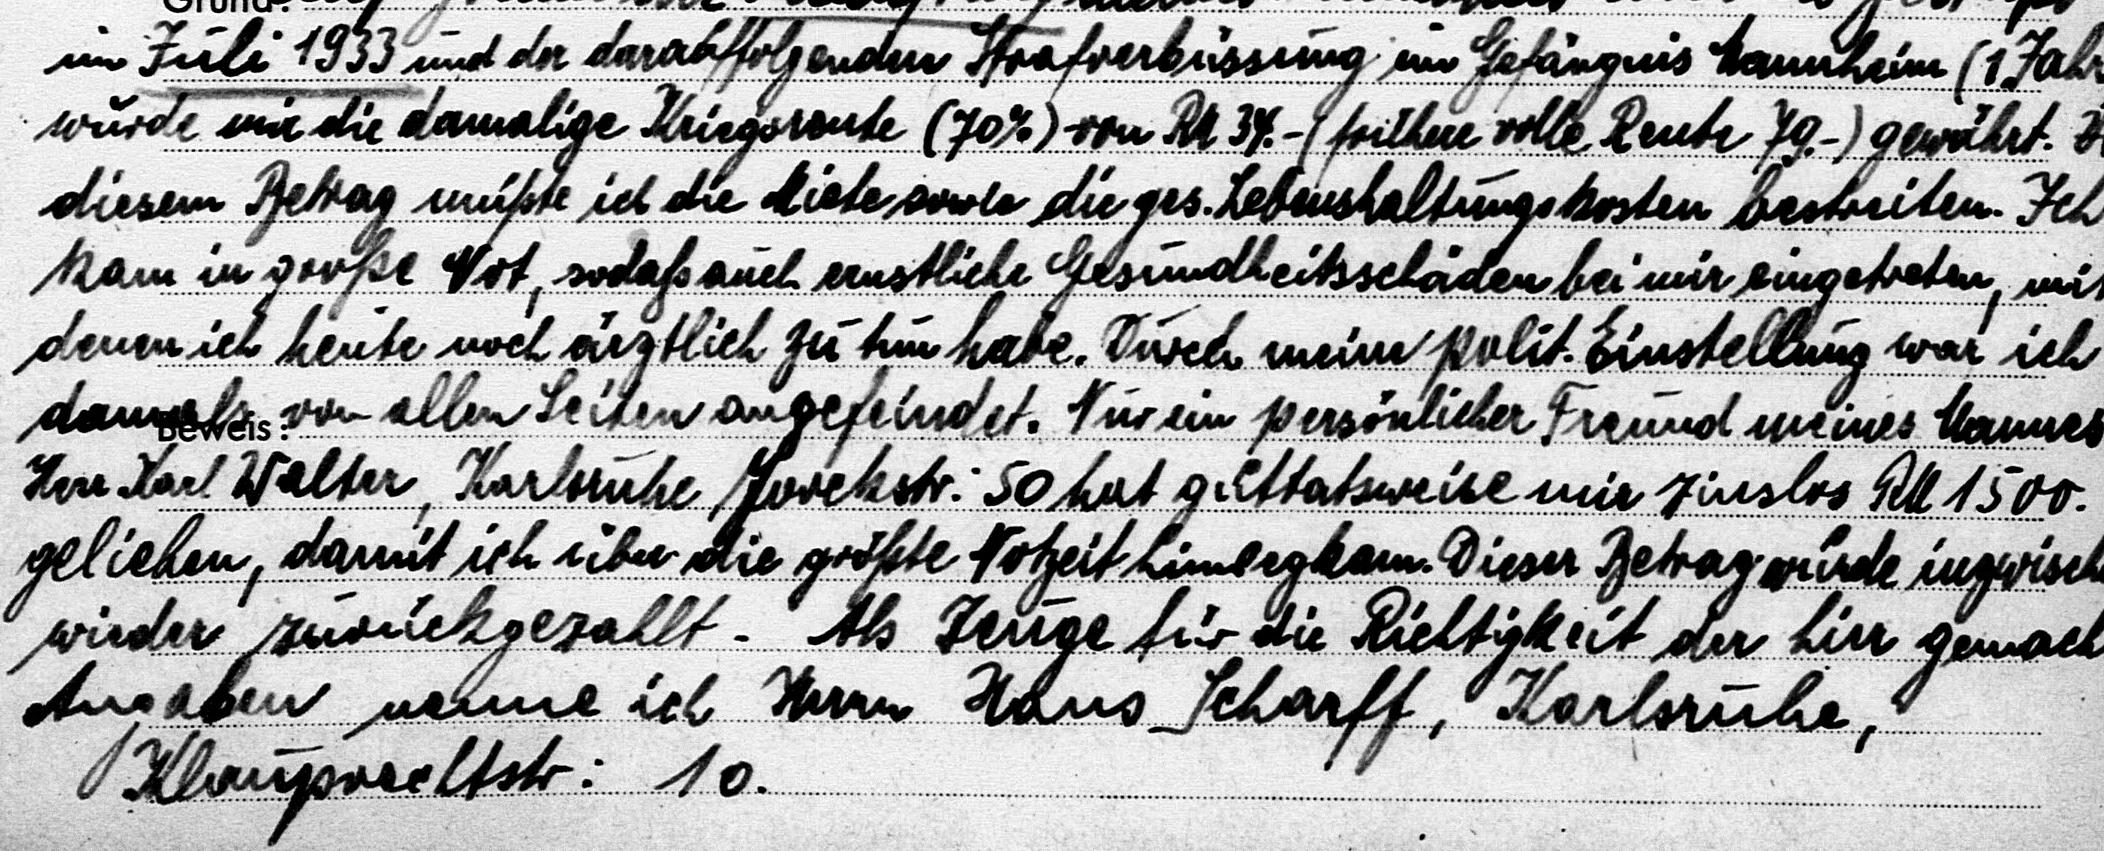 Grund:
im Juli 1933 und der darauffolgenden Strafverbüssung im Gefängnis Mannheim (1 Jahr
wurde mir die damalige Kriegsrente (70%) von RM 34.- (frühere volle Rente 79.-) gewährt.
diesem Betrag mußte ich die Miete sowie die ges. Lebenshaltungskosten bestreiten. Ich
kam in große Not, sodaß auch ernstliche Gesundheitsschäden bei mir eingetreten, mit
denen ich heute noch ärztlich zu tun habe. Durch meine polit. Einstellung war ich
damals von allen Seiten angefeindet. Nur ein persönlicher Freund meines Mannes
Beweis:
Herr Karl Walter, Karlsruhe Yorckstr. 50 hat guttatsweise mir zinslos RM 1500.
geliehen, damit ich über die größte Notzeit hinwegkam. Dieser Betrag wurde inzwisch
wieder zurückgezahlt. Als Zeuge für die Richtigkeit der hier gemach
Angaben nenne ich Herrn Hans Scharff, Karlsruhe,
Klauprechtstr: 10.